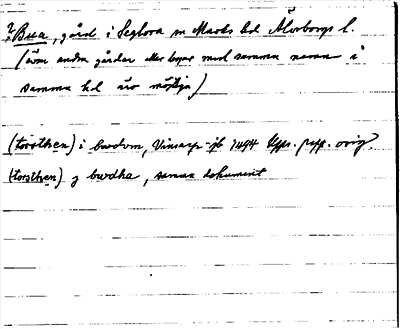 ? Bua, gård i Seglora sn Marks hd Älvsborgs l.
(även andra gårdar eller byar med samma namn i
samma hd äro möjliga)
(torsthen) i bwdom, Vinsarp-jb 1494 Upps. papp. orig.
(torsthen) j bwdha, samma dokument